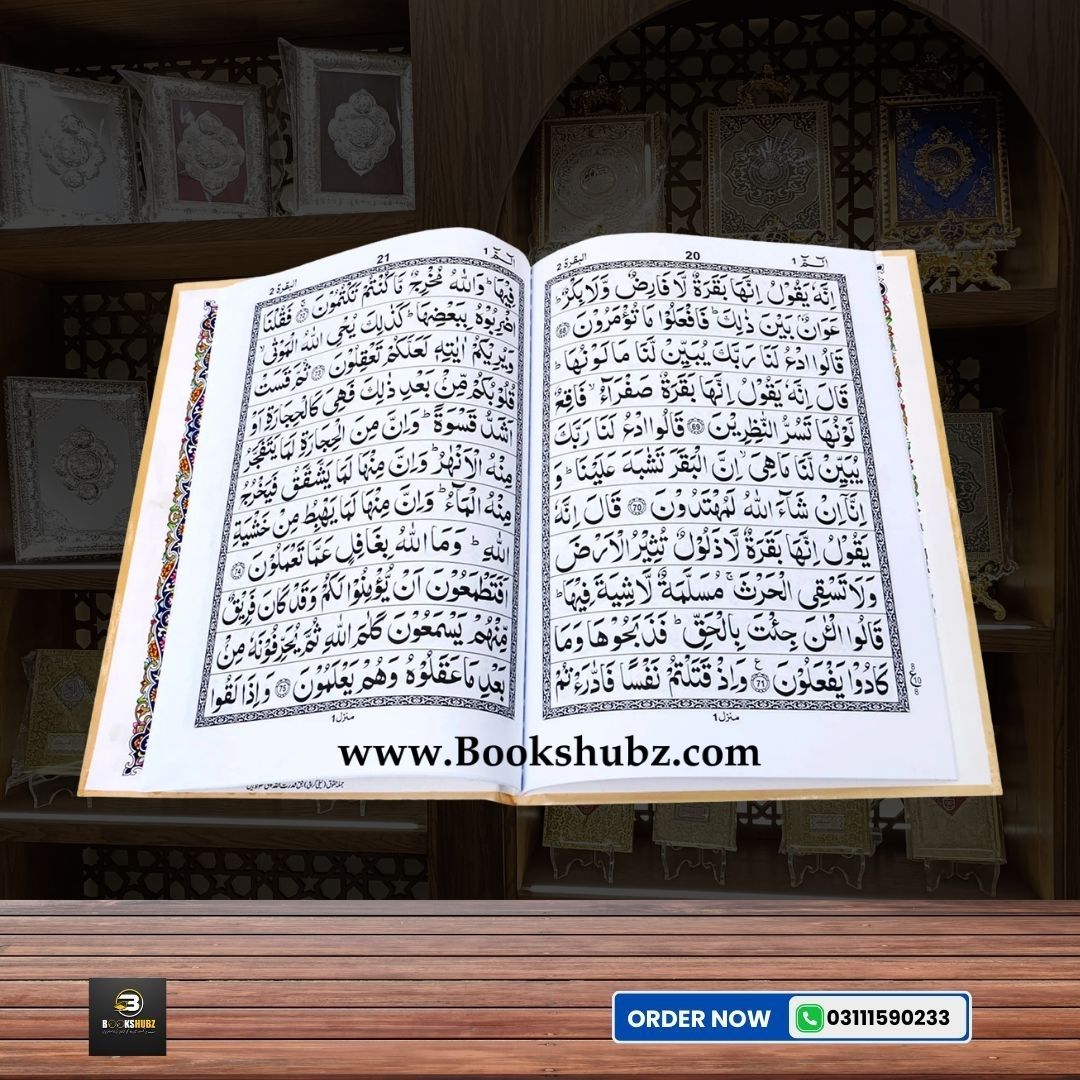 الٓمّٓ ١
20
البقرة ٢
اِنَّهٗ يَقُوْلُ اِنَّهَا بَقَرَةٌ لَّا فَارِضٌ وَّلَا بِكْرٌ ؕ
عَوَانٌۢ بَيْنَ ذٰلِكَ ؕ فَافْعَلُوْا مَا تُؤْمَرُوْنَ 68
قَالُوا ادْعُ لَنَا رَبَّكَ يُبَيِّنْ لَّنَا مَا لَوْنُهَا ؕ
قَالَ اِنَّهٗ يَقُوْلُ اِنَّهَا بَقَرَةٌ صَفْرَآءُ ۙ فَاقِعٌ
لَّوْنُهَا تَسُرُّ النّٰظِرِيْنَ 69 قَالُوا ادْعُ لَنَا رَبَّكَ
يُبَيِّنْ لَّنَا مَا هِىَ ۙ اِنَّ الْبَقَرَ تَشٰبَهَ عَلَيْنَا ؕ وَ
اِنَّاۤ اِنْ شَآءَ اللّٰهُ لَمُهْتَدُوْنَ 70 قَالَ اِنَّهٗ
يَقُوْلُ اِنَّهَا بَقَرَةٌ لَّا ذَلُوْلٌ تُثِيْرُ الْاَرْضَ
وَلَا تَسْقِى الْحَرْثَ ۚ مُسَلَّمَةٌ لَّا شِيَةَ فِيْهَا ؕ
قَالُوا الْـٰٔنَ جِئْتَ بِالْحَقِّ ؕ فَذَبَحُوْهَا وَمَا
كَادُوْا يَفْعَلُوْنَ 71 وَاِذْ قَتَلْتُمْ نَفْسًا فَادّٰرَءْتُمْ
ع
8
10
8
منزل ١
الٓمّٓ ١
21
البقرة ٢
فِيْهَا ؕ وَاللّٰهُ مُخْرِجٌ مَّا كُنْتُمْ تَكْتُمُوْنَ 72 فَقُلْنَا
اضْرِبُوْهُ بِبَعْضِهَا ؕ كَذٰلِكَ يُحْىِ اللّٰهُ الْمَوْتٰى ۙ
وَيُرِيْكُمْ اٰيٰتِهٖ لَعَلَّكُمْ تَعْقِلُوْنَ 73 ثُمَّ قَسَتْ
قُلُوْبُكُمْ مِّنْۢ بَعْدِ ذٰلِكَ فَهِىَ كَالْحِجَارَةِ اَوْ
اَشَدُّ قَسْوَةً ؕ وَاِنَّ مِنَ الْحِجَارَةِ لَمَا يَتَفَجَّرُ
مِنْهُ الْاَنْهٰرُ ؕ وَاِنَّ مِنْهَا لَمَا يَشَّقَّقُ فَيَخْرُجُ
مِنْهُ الْمَآءُ ؕ وَاِنَّ مِنْهَا لَمَا يَهْبِطُ مِنْ خَشْيَةِ
اللّٰهِ ؕ وَمَا اللّٰهُ بِغَافِلٍ عَمَّا تَعْمَلُوْنَ 74
اَفَتَطْمَعُوْنَ اَنْ يُّؤْمِنُوْا لَكُمْ وَقَدْ كَانَ فَرِيْقٌ
مِّنْهُمْ يَسْمَعُوْنَ كَلٰمَ اللّٰهِ ثُمَّ يُحَرِّفُوْنَهٗ مِنْۢ
بَعْدِ مَا عَقَلُوْهُ وَهُمْ يَعْلَمُوْنَ 75 وَاِذَا لَقُوا
منزل ١
www.Bookshubz.com
BOOKSHUBZ
ORDER NOW 03111590233